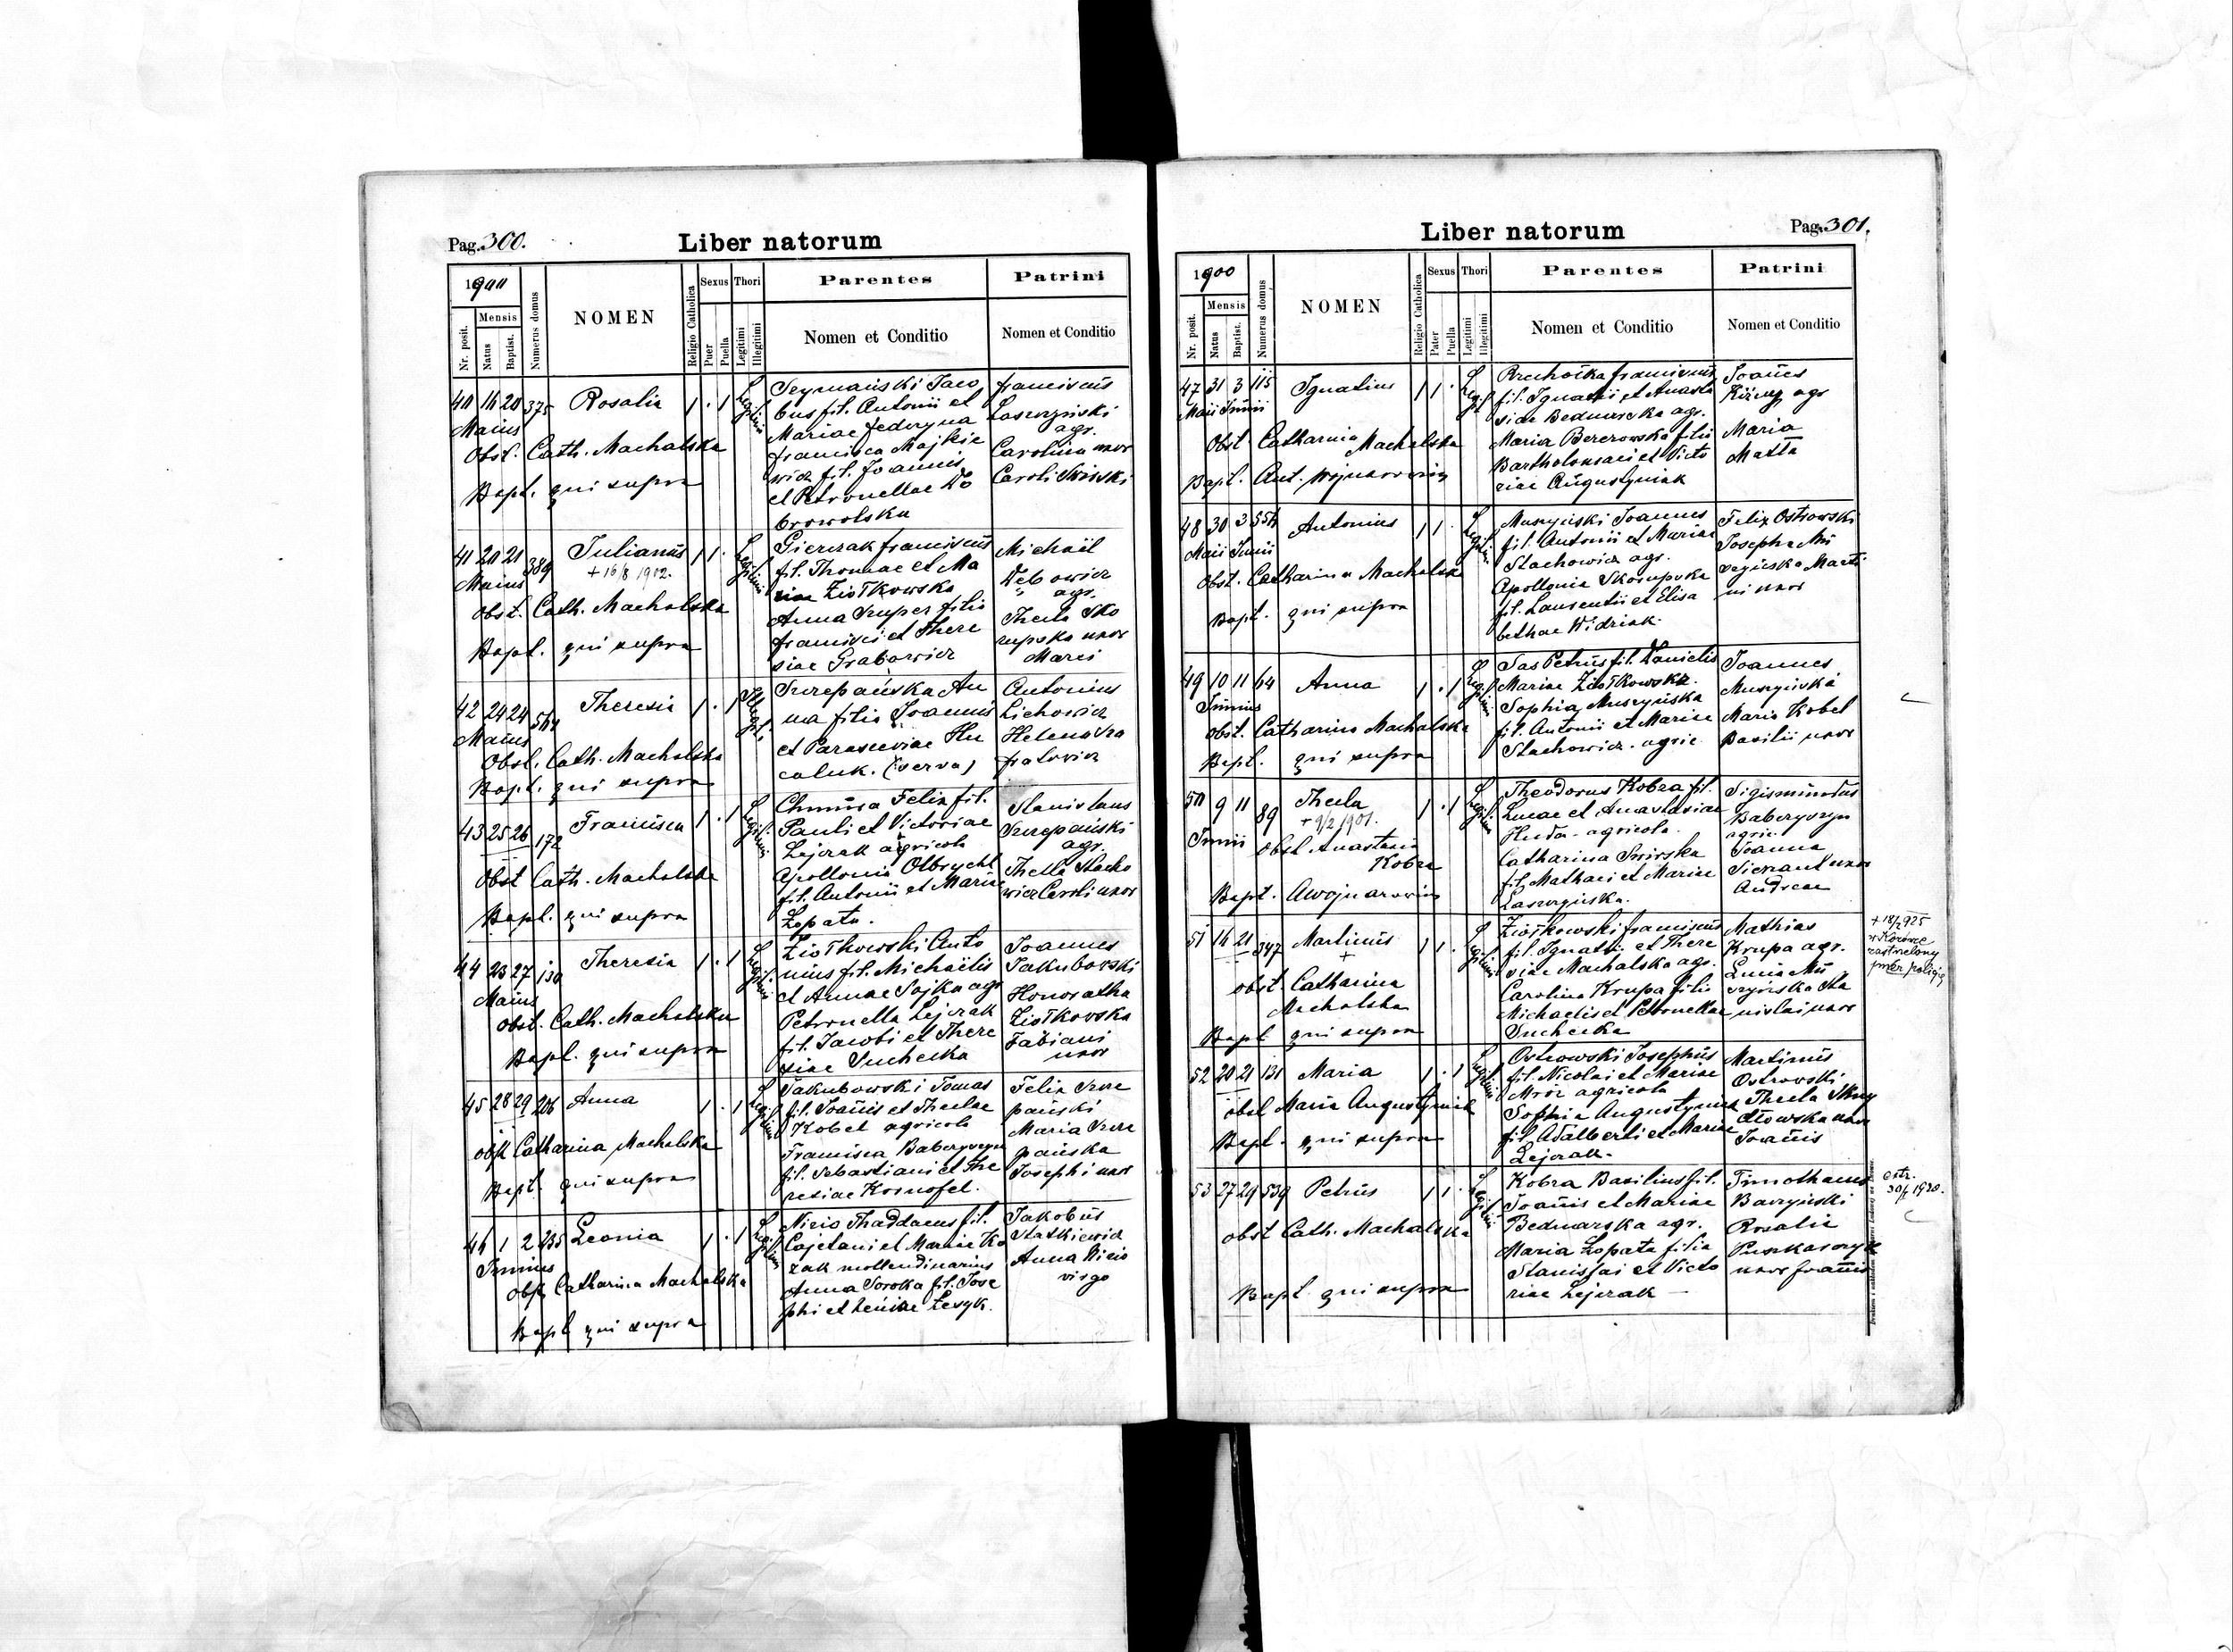 Pag. 300.
Liber natorum
1900
Mensis
Nr. posit.
Natus
Baptist.
Numerus domus
NOMEN
Religio Catholica
Sexus
Puer
Puella
Thori
Legitimi
Illegitimi
Parentes
Nomen et Conditio
Patrini
Nomen et Conditio
40 16 20 375 Rosalia 1 . 1 Legitimi
Maius
Obst. Cath. Machalska
Bapt. qui supra
Seymański Jaco
bus fil. Antonii et
Mariae Federyna
Francisca Majkie
wicz fil. Joannis
et Petronellae Do
browolska
Franciscus
Laszczyński
agr.
Carolina uxor
Caroli Skirski
41 20 21 389 Julianus 1 1 . Legitimi
+ 16/8 1912.
Maius
Obst. Cath. Machalska
Bapt. qui supra
Gierczak Franciscus
fil. Thomae et Ma
riae Ziółkowska
Anna Szuper filia
Francisci et There
siae Grabowicz
Michaël
Debowicz
agr.
Thecla Sko
rupska uxor
Marci
42 24 24 564 Theresia 1 . 1 Illegit.
Maius
Obst. Cath. Machalska
Bapt. qui supra
Szczepańska An
na filia Joannis
et Parasceviae Hu
caluk. (serva)
Antonius
Lichowicz
Helena Gra
fatowicz
43 25 26 172 Francisca 1 . 1 Legitimi
Obst Cath. Machalska
Bapt. qui supra
Chmura Felix fil.
Pauli et Victoriae
Lejczak agricola
Apollonia Olbrycht
fil. Antonii et Mariae
Łopata.
Stanislaus
Szczepański
agr.
Thecla Stacho
wicz Caroli uxor
44 23 27 130 Theresia 1 . 1 Legitimi
Maius
Obst. Cath. Machalska
Bapt. qui supra
Ziółkowski Anto
nius fil. Michaëlis
et Annae Sojka agr
Petronella Lejczak
fil. Jacobi et There
siae Suchecka
Joannes
Jakubowski
Honoratha
Ziółkowska
Fabiani
uxor
45 28 29 206 Anna 1 . 1 Legitimi
obst Catharina Machalska
Bapt. qui supra
Jakubowski Tomas
fil. Joannis et Theclae
Kobel agricola
Francisca Baberyszyn
fil. Sebastiani et The
resiae Kornofel.
Felix Szcze
pański
Maria Szcze
pańska
Josephi uxor
46 1 2 235 Leonia 1 . 1 Legitimi
Junius
obst Catharina Machalska
Bapt qui supra
Nicio Thaddaeus fil.
Cajetani et Mariae Ko
zak mollendinarius
Anna Soroka fil. Jose
phi et Luciae Lesyk.
Jakobus
Statkiewicz
Anna Nicio
virgo
Liber natorum
Pag. 301.
1900
Mensis
Nr. posit.
Natus
Baptist.
Numerus domus
NOMEN
Religio Catholica
Sexus
Pater
Puella
Thori
Legitimi
Illegitimi
Parentes
Nomen et Conditio
Patrini
Nomen et Conditio
47 31 3 115 Ignatius 1 1 . Legitimi
Maii Junii
Obst Catharina Machalska
Bapt. Ant. Wojnarowicz
Bruchocka Franciscus
fil. Ignatii et Anasta
siae Bednarska agr.
Maria Berezowska filia
Bartholomaei et Victo
riae Augustyniak
Joannes
agr
Maria
Matta
48 30 3 554 Antonius 1 1 . Legitimi
Maii Junii
Obst. Catharina Machalska
Bapt. qui supra
Muszyński Joannes
fil. Antonii et Mariae
Stachowicz agr.
Apollonia Skorupska
fil. Laurentii et Elisa
bethae Widziak.
Felix Ostrowski
Josepha Mu
szyńska Marti
ni uxor
49 10 11 64 Anna 1 . 1 Legitimi
Junius
obst. Catharina Machalska
Bapt. qui supra
Sas Petrus fil. Danielis
Mariae Ziółkowska.
Sophia Muszyńska
fil. Antonii et Mariae
Stachowicz. agric.
Joannes
Muszyński
Maria Kobel
Basilii uxor
50 9 11 89 Thecla 1 . 1 Legitimi
+ 9/2 1901.
Junii obst Anastasia
Kobza
Bapt. AWojnarowicz
Theodorus Kobza fil.
Lucae et Anastasiae
Huda - agricola.
Catharina Smirska
fil. Mathaei et Mariae
Laszczyńska.
Sigismundus
Baberyszyn
agric.
Joanna
Sierant uxor
Andreae
51 16 21 347 Martinus 1 1 . Legitimi
+
obst. Catharina
Machalska
Bapt qui supra
Ziółkowski Franciscus
fil. Ignatii et There
siae Machalska agr.
Carolina Krupa filia
Michaelis et Petronellae
Suchecka
Mathias
Krupa agr.
Lucia Mu
szyńska Sta
nislai uxor
+ 18/2 925
zastrzelony
przez policję
52 20 21 131 Maria 1 . 1 Legitimi
obst Maria Augustyniak
Bapt. qui supra
Ostrowski Josephus
fil. Nicolai et Mariae
Mróz agricola
Sophia Augustyniak
fil. Adalberti et Mariae
Lejczak.
Martinus
Ostrowski
Thecla
uxor
Joannis
53 27 29 539 Petrus 1 1 . Legitimi
obst Cath. Machalska
Bapt qui supra
Kobza Basilius fil.
Joannis et Mariae
Bednarska agr.
Maria Łopata filia
Stanislai et Victo
riae Lejczak -
Timothaeus
Baczyński
Rosalia
Puszkarczyk
uxor Joannis
extr.
30/ 1920.